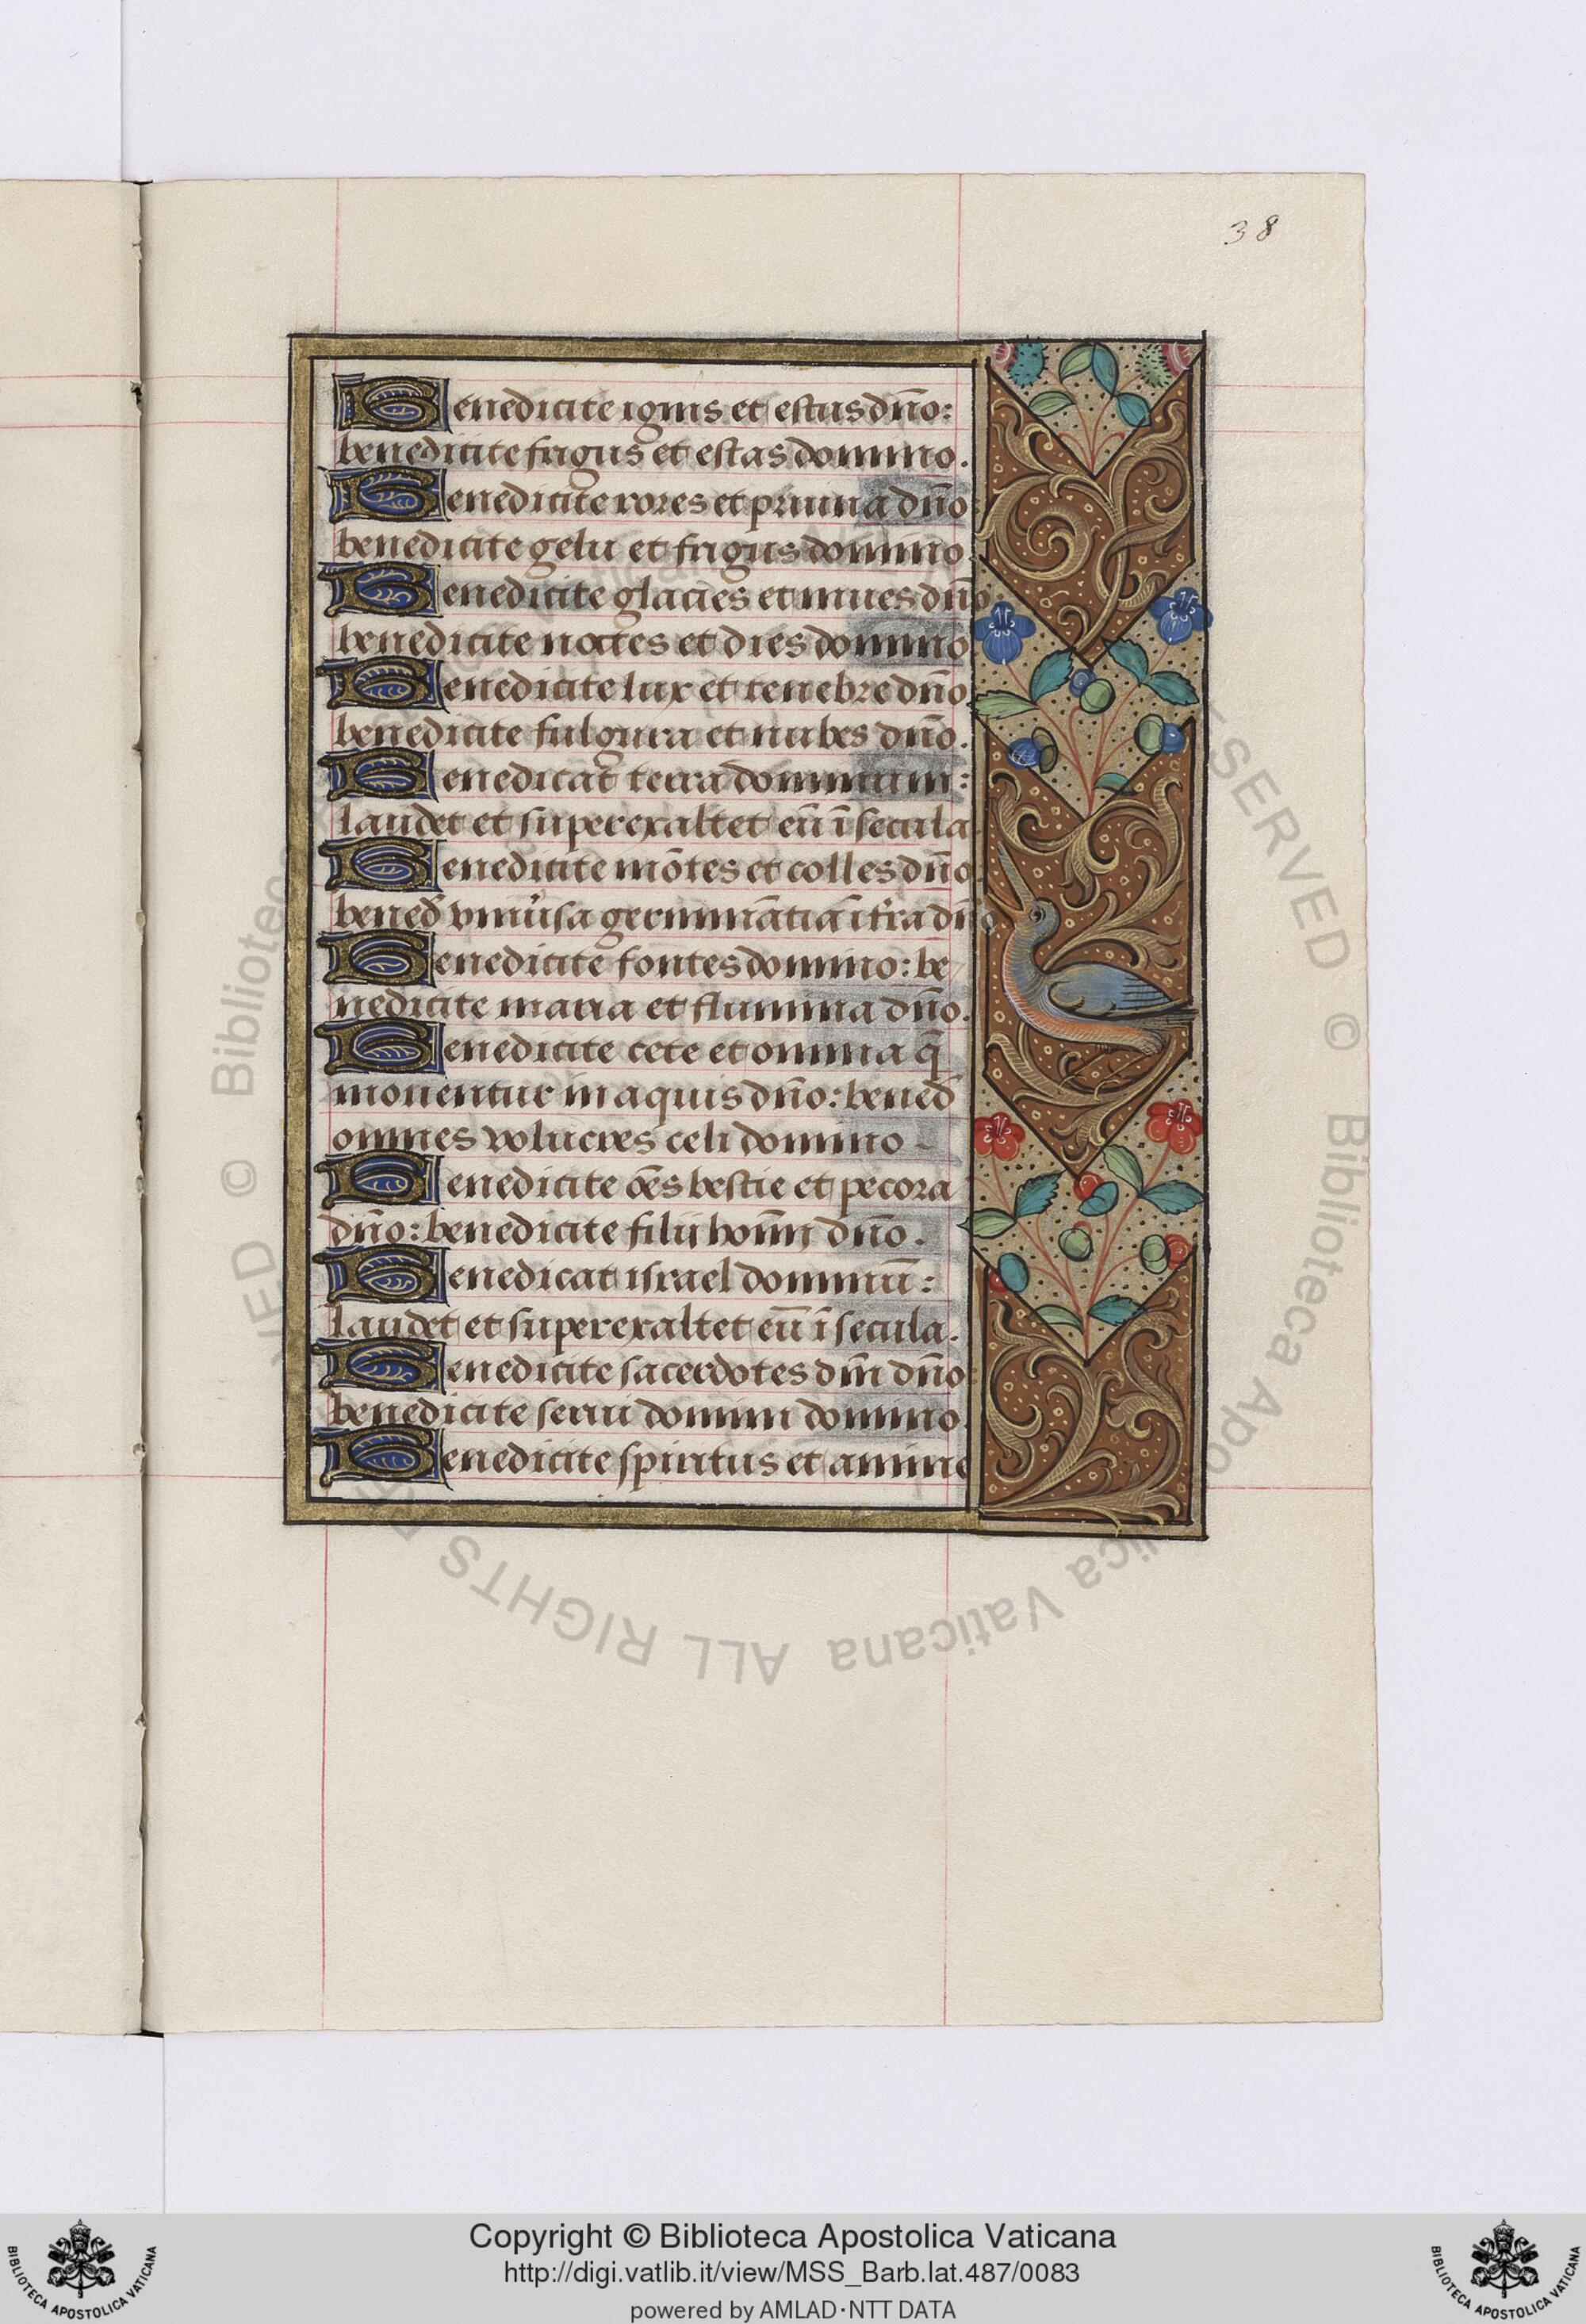 38
Benedicite ignis et estus dn̄o:
benedicite frigus et estas domino.
Benedicite rores et pruina dn̄o:
benedicite gelu et frigus domino.
Benedicite glacies et niues dn̄o:
benedicite noctes et dies domino.
Benedicite lux et tenebre dn̄o:
benedicite fulgura et nubes dn̄o.
Benedicat terra dominum:
laudet et superexaltet eū ī secula.
Benedicite mōtes et colles dn̄o:
bened̄ vniu̾sa germinātia ī tr̄ra dn̄o
Benedicite fontes domino: be
nedicite maria et flumina dn̄o.
Benedicite cete et omnia q̄
mouentur in aquis dn̄o: bened̄
omnes volucres celi domino
Benedicite oēs bestie et pecora
dn̄o: benedicite filij hoīm̄ dn̄o.
Benedicat israel dominū:
laudet et superexaltet eū ī secula.
Benedicite sacerdotes dn̄i dn̄o:
benedicite serui domini domino.
Benedicite spiritus et anime
© Biblioteca Apostolica Vaticana ALL RIGHTS RESERVED
Copyright © Biblioteca Apostolica Vaticana
http://digi.vatlib.it/view/MSS_Barb.lat.487/0083
powered by AMLAD·NTT DATA
BIBLIOTECA APOSTOLICA VATICANA
BIBLIOTECA APOSTOLICA VATICANA